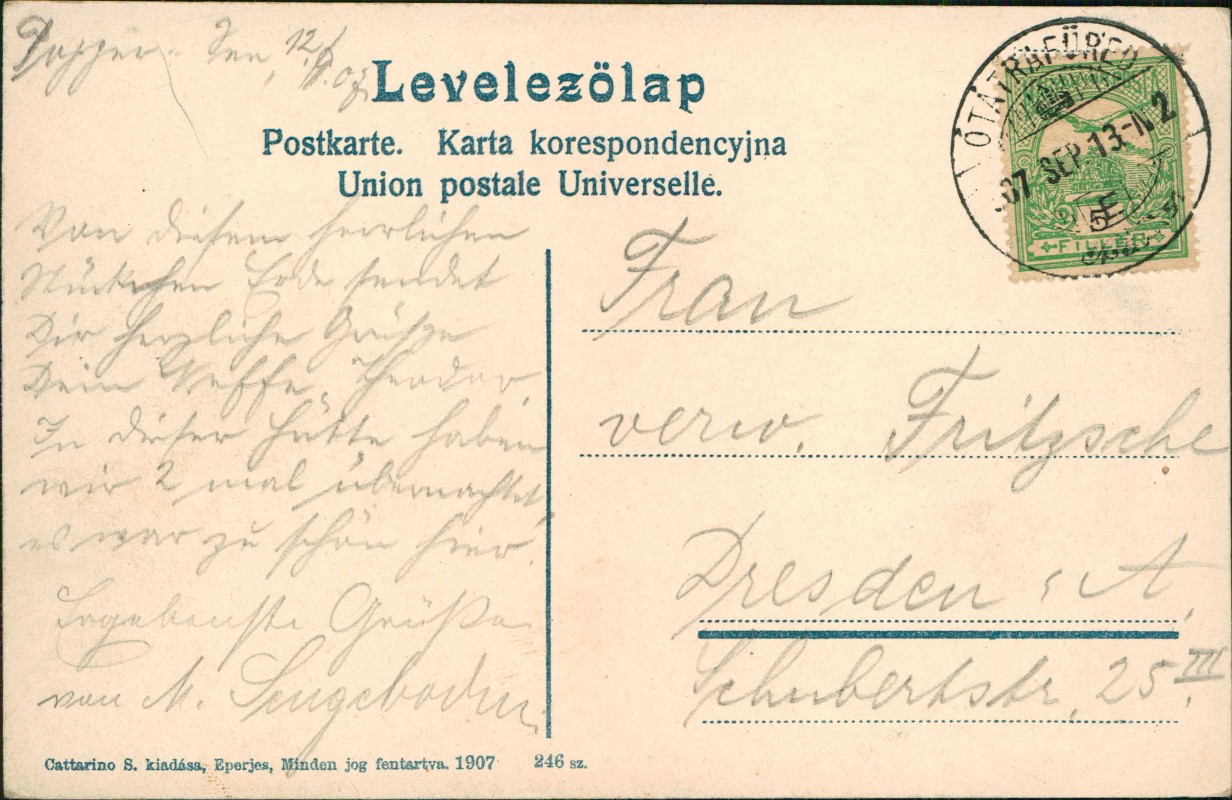 Popper-See, 12./9.07
Levelezőlap
Postkarte. Karta korespondencyjna
Union postale Universelle.
ÓTÁTRAFÜRED
907 SEP 13-N 2
5
FILLÉR
Von diesem herrlichen
Stückchen Erde sendet
Dir herzliche Grüße
Dein Neffe Theodor.
In dieser Hütte haben
wir 2 mal übernachtet,
es war zu schön hier.
Ergebenste Grüße
von M.
Frau
verw. Fritzsche
Dresden-A.
Schubertstr. 25 III.
Cattarino S. kiadása, Eperjes, Minden jog fentartva. 1907 246 sz.